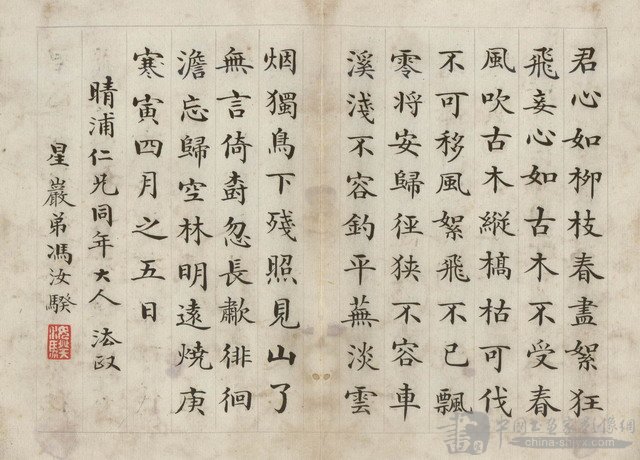 君心如柳枝春盡絮狂
飛妾心如古木不受春
風吹古木縱槁枯可伐
不可移風絮飛不已飄
零将安歸徑狹不容車
溪淺不容釣平蕪淡雲
烟獨鳥下殘照見山了
無言倚樹忽長歗徘徊
澹忘歸空林明遠燒庚
寒寅四月之五日
晴浦仁兄同年大人 法政
星巖弟馮汝騤
china-shjyx.com